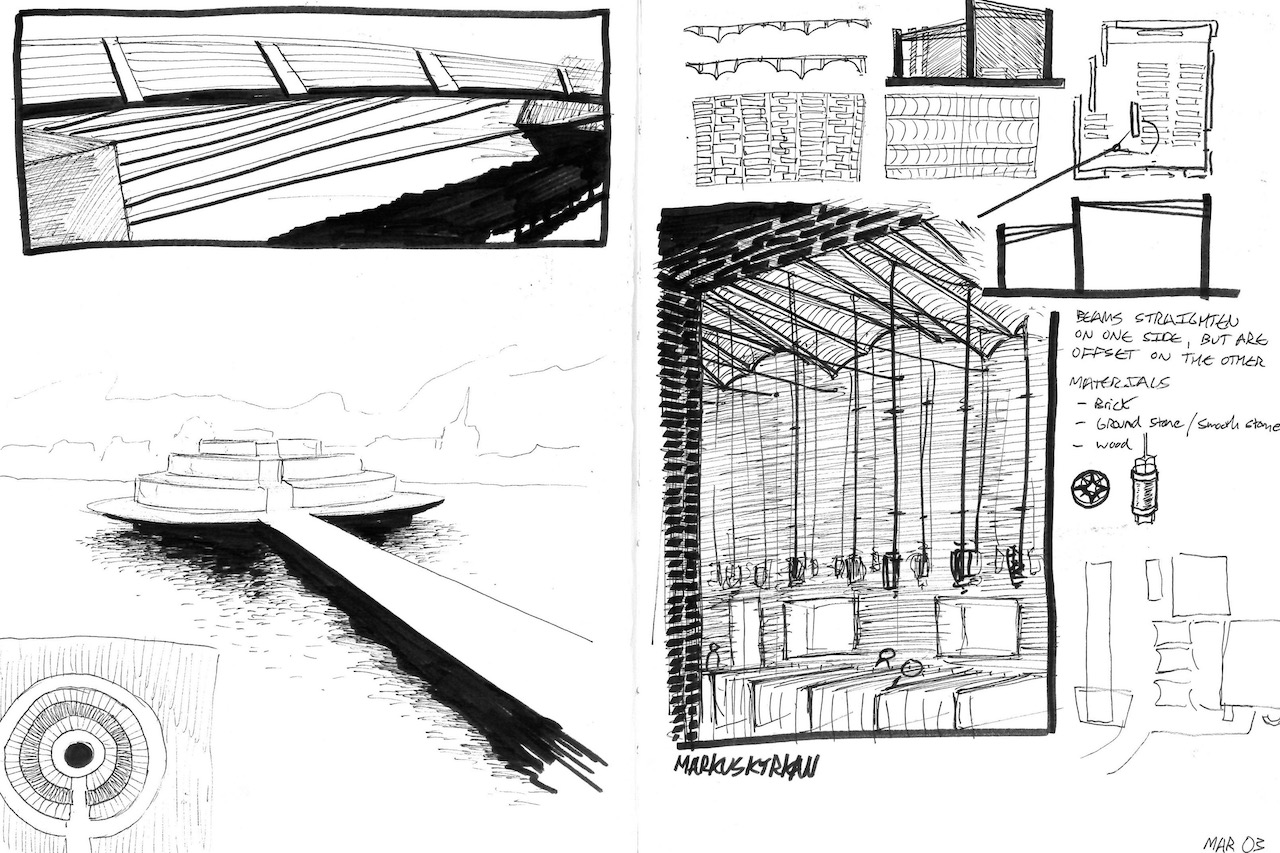 BEAMS STRAIGHTEN
ON ONE SIDE, BUT ARE
OFFSET ON THE OTHER
MATERIALS
- Brick
- Ground stone / smooth stone
- wood
MARKUSKYRKAN
MAR 03